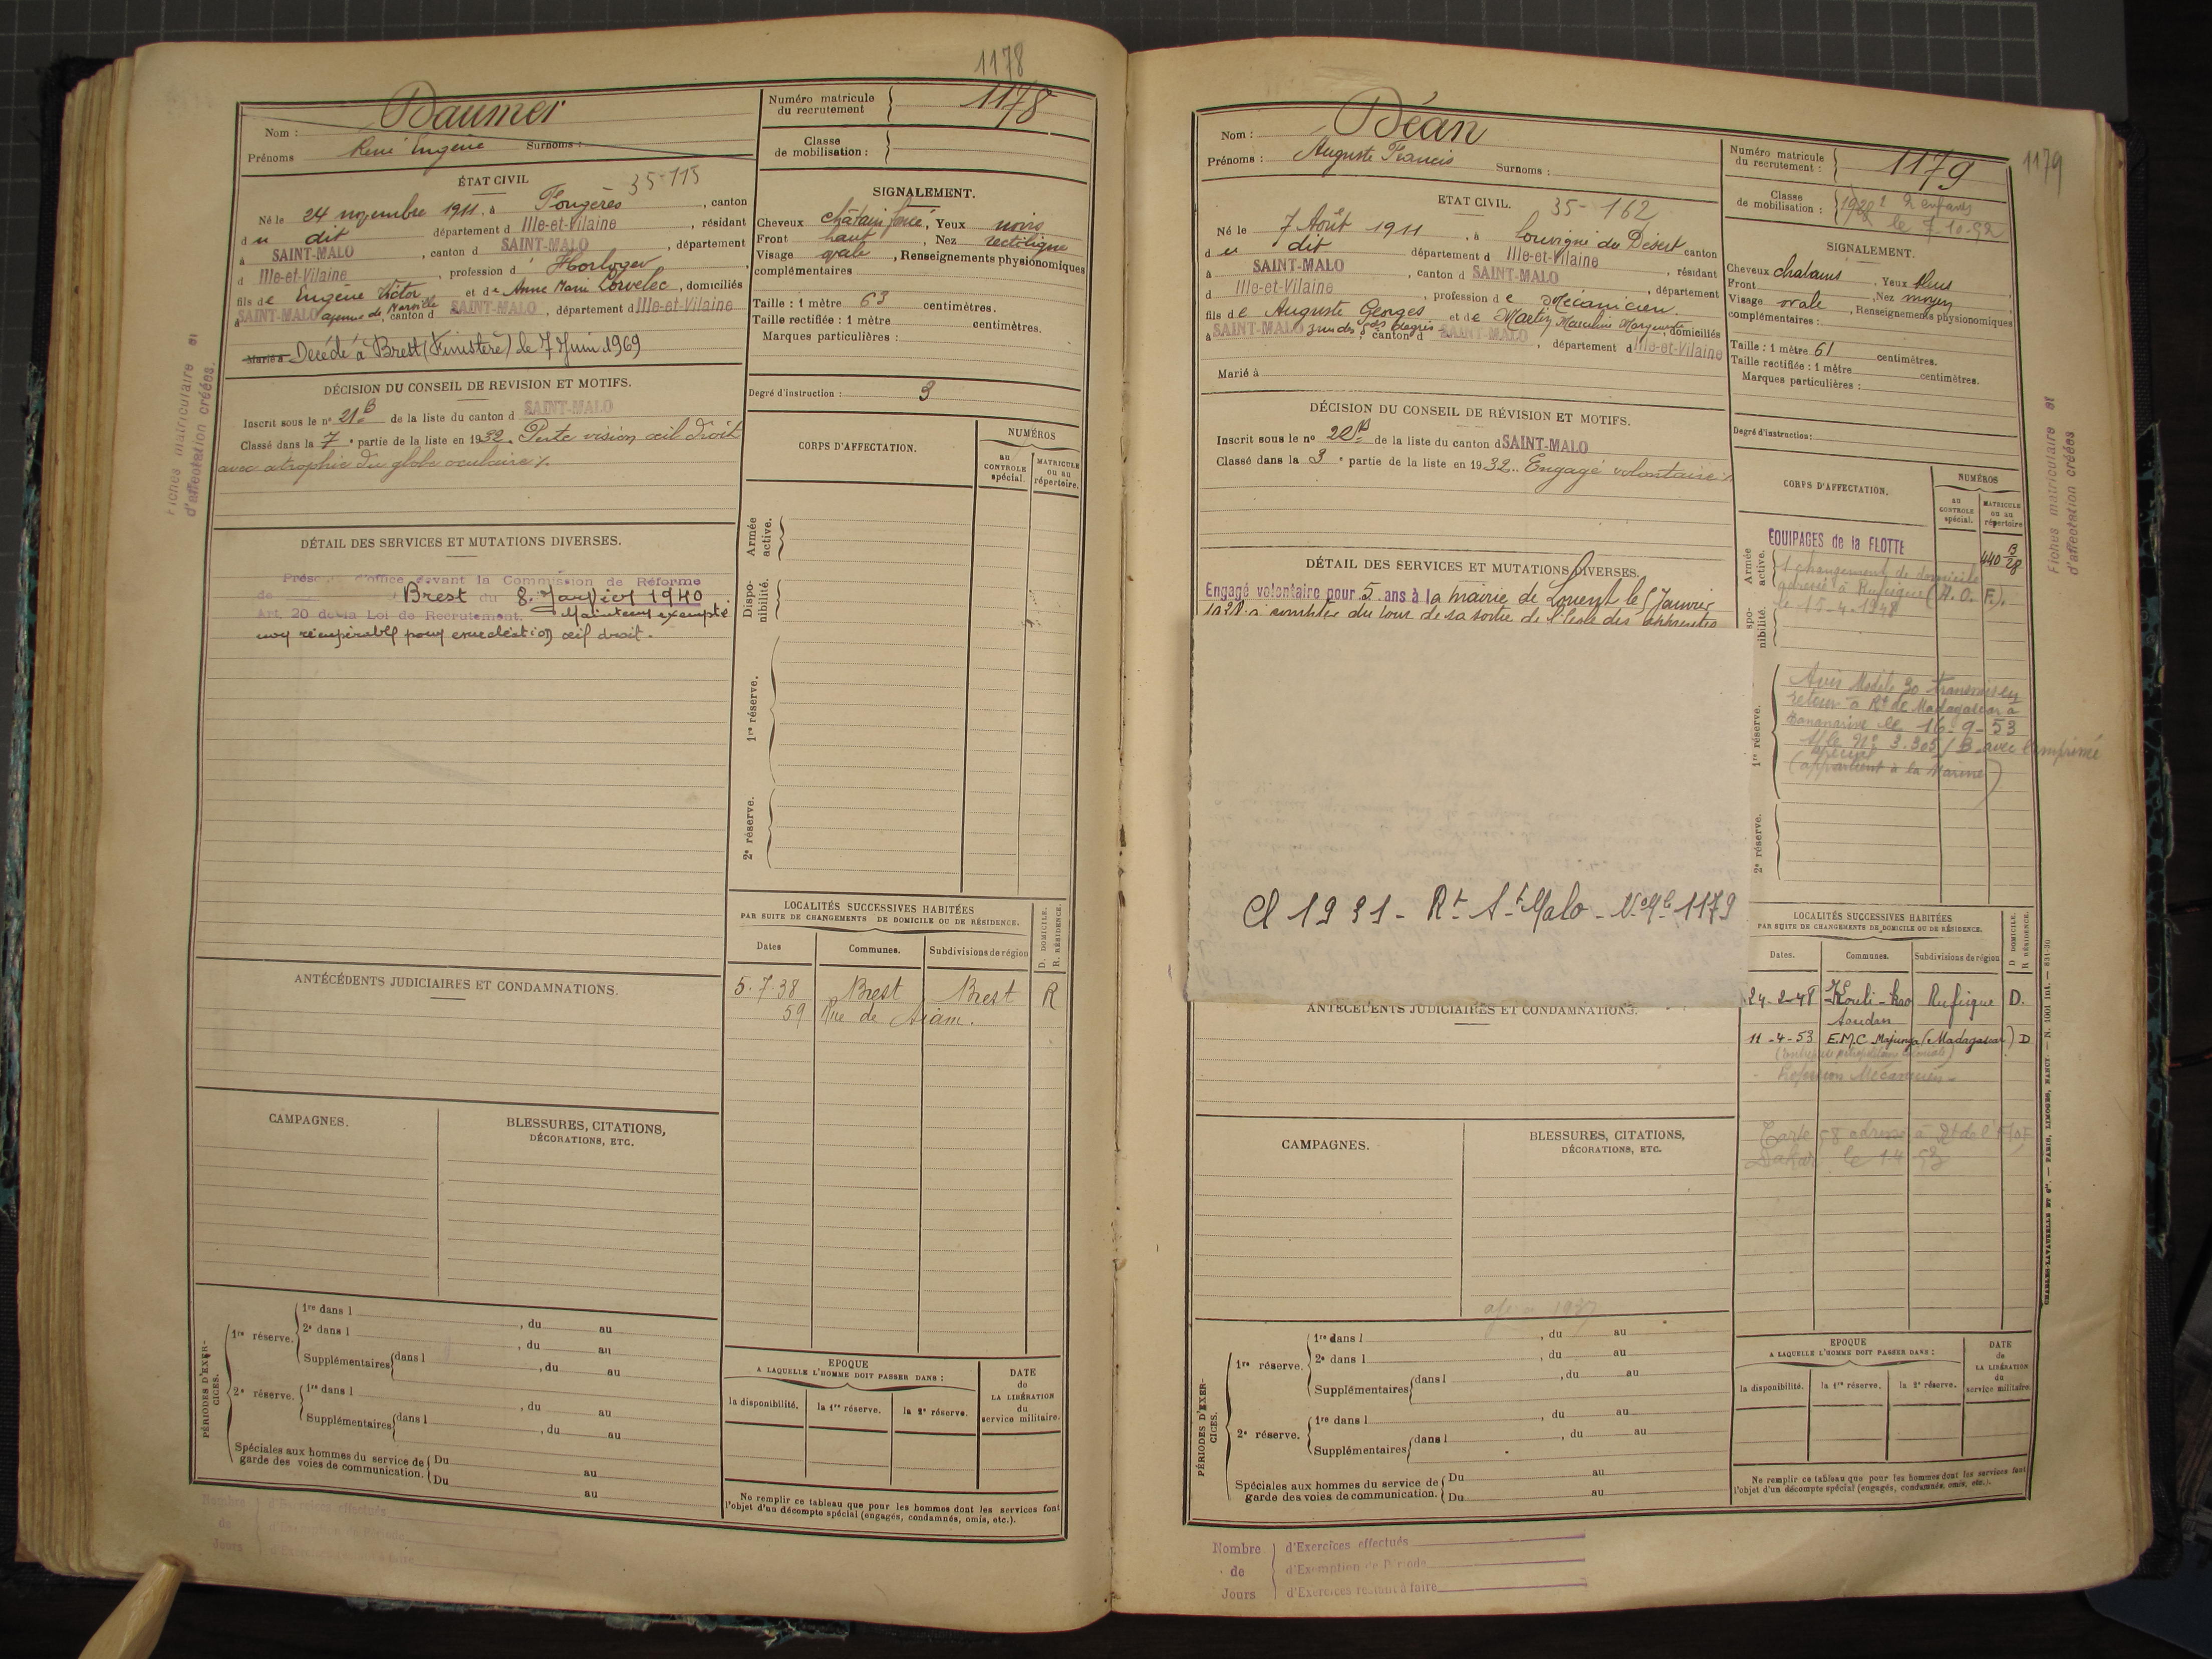 1178
Nom : Daumer
Prénoms René Eugène Surnoms :
Numéro matricule du recrutement 1178
Classe de mobilisation :
ÉTAT CIVIL 35-115
Né le 24 novembre 1911, à Fougères, canton
du dit département d Ille-et-Vilaine, résidant
à SAINT-MALO, canton d SAINT-MALO, département
d Ille-et-Vilaine, profession d' Horloger
fils de Eugène Victor et de Anne Marie Lorvelec, domiciliés
à SAINT-MALO, canton d SAINT-MALO, département d Ille-et-Vilaine
Marié à Décédé à Brest (Finistère) le 7 Juin 1969
SIGNALEMENT.
Cheveux châtain foncé, Yeux noirs
Front haut, Nez rectiligne
Visage ovale, Renseignements physionomiques
complémentaires
Taille : 1 mètre 63 centimètres.
Taille rectifiée : 1 mètre centimètres.
Marques particulières :
Degré d'instruction : 3
DÉCISION DU CONSEIL DE REVISION ET MOTIFS.
Inscrit sous le n° 21 B de la liste du canton d SAINT-MALO
Classé dans la 7e partie de la liste en 1932. Perte vision œil droit
avec atrophie du globe oculaire
DÉTAIL DES SERVICES ET MUTATIONS DIVERSES.
d'office devant la Commission de Réforme
de Brest du 8 Janvier 1940
Art. 20 de la Loi de Recrutement. Maintenu exempté
non récupérable pour énucléation œil droit.
CORPS D'AFFECTATION.
NUMÉROS
au CONTROLE spécial.
MATRICULE ou au répertoire.
Armée active.
Disponibilité.
1re réserve.
2e réserve.
LOCALITÉS SUCCESSIVES HABITÉES
PAR SUITE DE CHANGEMENTS DE DOMICILE OU DE RÉSIDENCE.
D. DOMICILE. R. RÉSIDENCE.
Dates Communes. Subdivisions de région
5-7-38 Brest Brest R
59 Rue de Siam.
ANTÉCÉDENTS JUDICIAIRES ET CONDAMNATIONS.
CAMPAGNES.
BLESSURES, CITATIONS,
DÉCORATIONS, ETC.
PÉRIODES D'EXERCICES.
1re réserve.
1re dans l , du au
2e dans l , du au
Supplémentaires dans l , du au
2e réserve.
1re dans l , du au
Supplémentaires dans l , du au
Spéciales aux hommes du service de garde des voies de communication.
Du au
Du au
EPOQUE
A LAQUELLE L'HOMME DOIT PASSER DANS :
la disponibilité. la 1re réserve. la 2e réserve.
DATE de LA LIBÉRATION du service militaire.
Ne remplir ce tableau que pour les hommes dont les services font
l'objet d'un décompte spécial (engagés, condamnés, omis, etc.).
Nombre de Jours
d'Exercices effectués
Fiches matriculaire et
d'affectation créées.
Nom : Béan
Prénoms : Auguste Francis Surnoms :
Numéro matricule du recrutement : 1179
1179
Classe de mobilisation : 2 enfants
ETAT CIVIL. 35-162
Né le 7 Août 1911, à Louvigné du Désert canton
du dit département d Ille-et-Vilaine
à SAINT-MALO, canton d SAINT-MALO, résidant
d Ille-et-Vilaine, profession de Mécanicien, département
fils de Auguste Georges et de Martin Marceline Marguerite, domiciliés
à SAINT-MALO, canton d SAINT-MALO, département d Ille-et-Vilaine
Marié à
SIGNALEMENT.
Cheveux chatains, Yeux bleus
Front, Nez moyen
Visage ovale, Renseignements physionomiques
complémentaires :
Taille : 1 mètre 61 centimètres.
Taille rectifiée : 1 mètre centimètres.
Marques particulières :
Degré d'instruction :
DÉCISION DU CONSEIL DE RÉVISION ET MOTIFS.
Inscrit sous le no 20 B de la liste du canton d SAINT-MALO
Classé dans la 3e partie de la liste en 1932. Engagé volontaire
DÉTAIL DES SERVICES ET MUTATIONS DIVERSES.
Engagé volontaire pour 5 ans à la mairie de Lorient le 5 Janvier
1928 à compter du jour de sa sortie de l'école des apprentis
Cl 1931 - Rt St Malo - No Mle 1179
CORPS D'AFFECTATION.
NUMÉROS
au CONTROLE spécial.
MATRICULE ou au répertoire
Armée active.
EQUIPAGES de la FLOTTE 440 B/28
1 changement de domicile
adressé à Rufisque (A.O.F.).
le 15-4-1948
1re réserve.
Avis Modèle 30 transmis en
retour à Rt de Madagascar à
Tananarive le 16-9-53
s/le No 3.305/B avec imprimé
(appartient à la Marine)
2e réserve.
LOCALITÉS SUCCESSIVES HABITÉES
PAR SUITE DE CHANGEMENTS DE DOMICILE OU DE RÉSIDENCE.
D DOMICILE. R RÉSIDENCE.
Dates. Communes. Subdivisions de région
24-2-48 Rufisque D.
Soudan
11-4-53 E.M.C. Majunga (Madagascar) D
Profession Mécanicien
Dakar
ANTÉCÉDENTS JUDICIAIRES ET CONDAMNATIONS.
CAMPAGNES.
BLESSURES, CITATIONS,
DÉCORATIONS, ETC.
PÉRIODES D'EXERCICES.
1re réserve.
1re dans l , du au
2e dans l , du au
Supplémentaires dans l , du au
2e réserve.
1re dans l , du au
Supplémentaires dans l , du au
Spéciales aux hommes du service de garde des voies de communication.
Du au
Du au
EPOQUE
A LAQUELLE L'HOMME DOIT PASSER DANS :
la disponibilité. la 1re réserve. la 2e réserve.
DATE de LA LIBÉRATION du service militaire.
Ne remplir ce tableau que pour les hommes dont les services font
l'objet d'un décompte spécial (engagés, condamnés, omis, etc.).
Nombre de Jours
d'Exercices effectués
d'Exemption de Période
d'Exercices restant à faire
Fiches matriculaire et
d'affectation créées
CHARLES-LAVAUZELLE ET Cie. — PARIS, LIMOGES, NANCY. — N. 1001 int. — 831-30